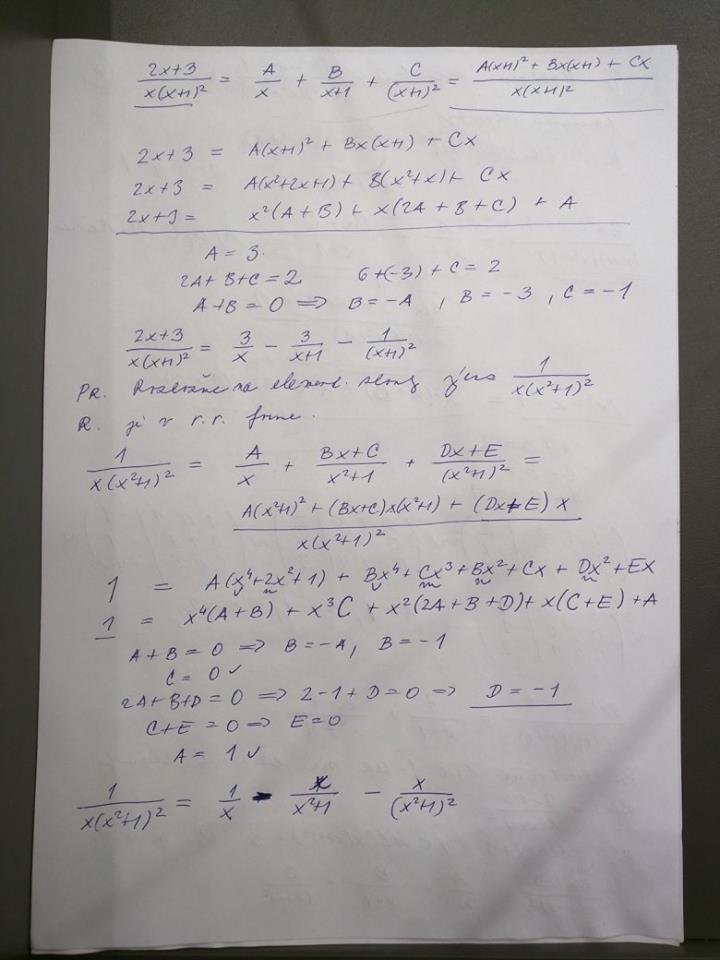 (2x+3)/(x(x+1)²) = A/x + B/(x+1) + C/(x+1)² = (A(x+1)² + Bx(x+1) + Cx)/(x(x+1)²)
2x+3 = A(x+1)² + Bx(x+1) + Cx
2x+3 = A(x²+2x+1) + B(x²+x) + Cx
2x+3 = x²(A+B) + x(2A+B+C) + A
A = 3.
2A+B+C = 2 6+(-3)+C = 2
A+B = 0 ⟹ B = -A, B = -3, C = -1
(2x+3)/(x(x+1)²) = 3/x - 3/(x+1) - 1/(x+1)²
PR. na element. 1/(x(x²+1)²)
R. je v r.r. forme.
1/(x(x²+1)²) = A/x + (Bx+C)/(x²+1) + (Dx+E)/(x²+1)² =
(A(x²+1)² + (Bx+C)x(x²+1) + (Dx+E)x)/(x(x²+1)²)
1 = A(x⁴+2x²+1) + Bx⁴+Cx³+Bx²+Cx+Dx²+EX
1 = x⁴(A+B) + x³C + x²(2A+B+D) + x(C+E) + A
A+B = 0 ⟹ B = -A, B = -1
C = 0 ✓
2A+B+D = 0 ⟹ 2-1+D = 0 ⟹ D = -1
C+E = 0 ⟹ E = 0
A = 1 ✓
1/(x(x²+1)²) = 1/x - x/(x²+1) - x/(x²+1)²